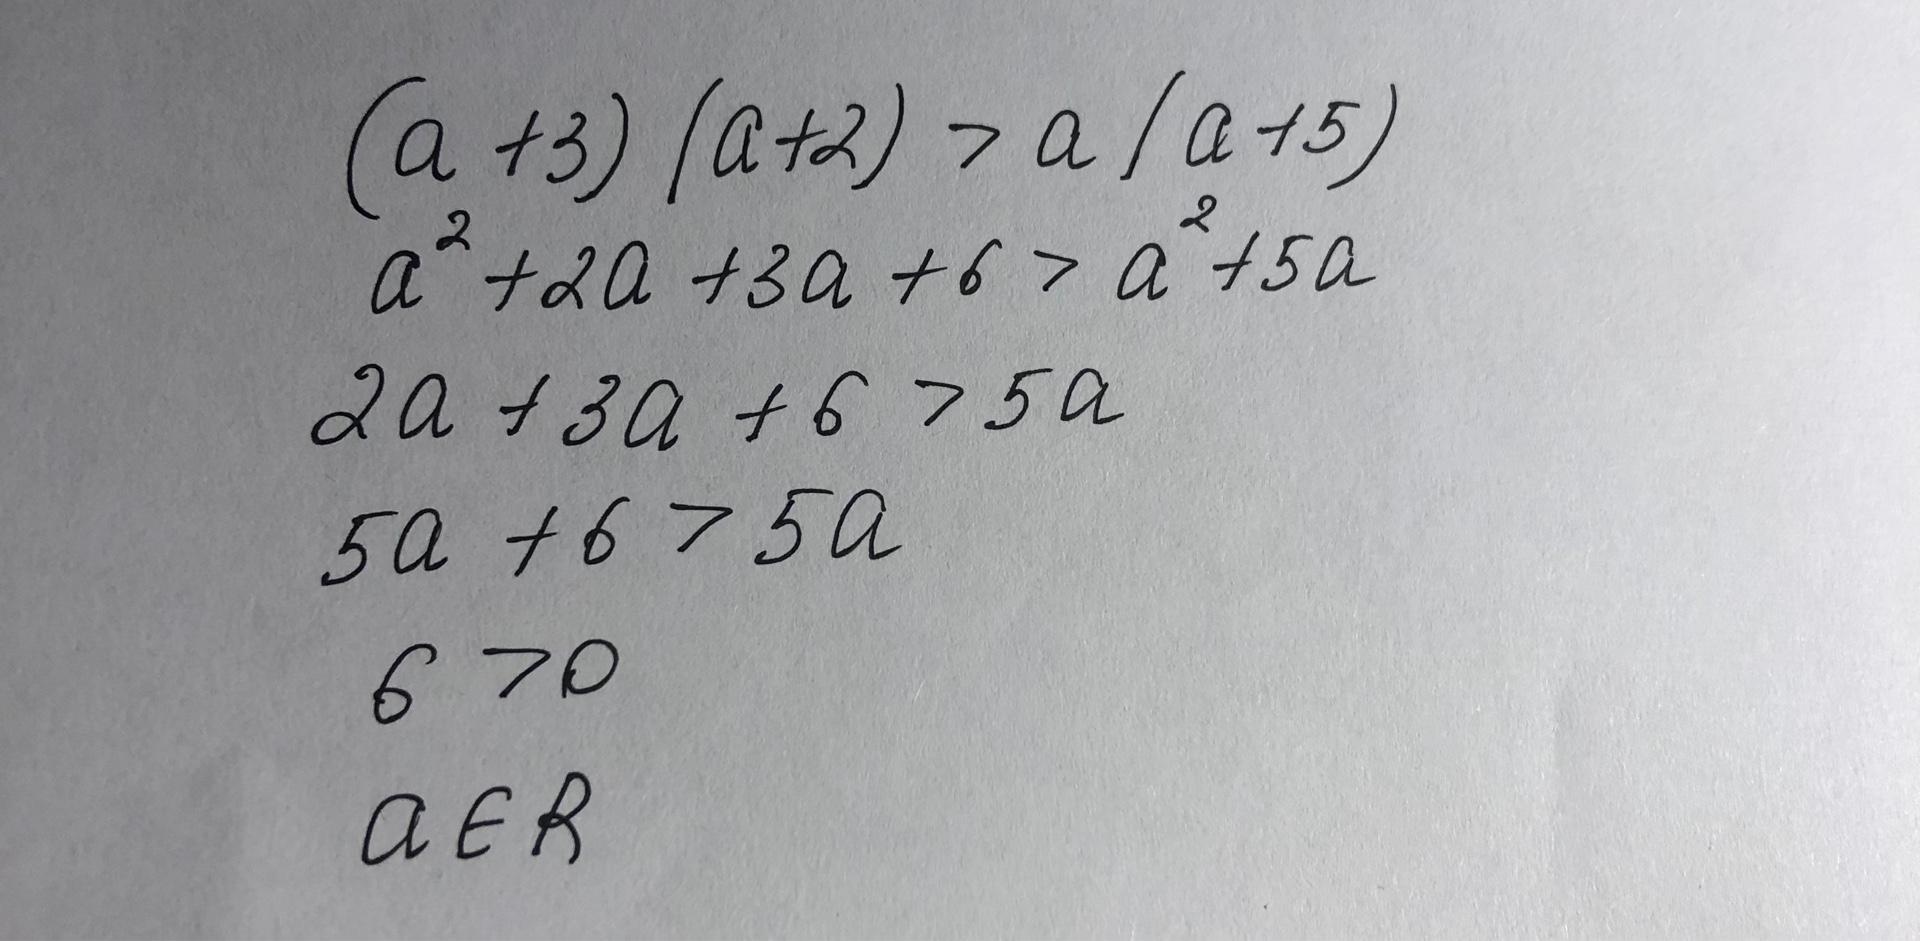 (a+3)(a+2)>a(a+5)
a²+2a+3a+6>a²+5a
2a+3a+6>5a
5a+6>5a
6>0
a∈R